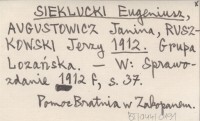 SIEKLUCKI Eugeniusz,
AUGUSTOWICZ Janina, RUSZ-
KOWSKI Jerzy 1912. Grupa
Lozańska. — W: Sprawo-
zdanie 1912 r, s. 37.
Pomoc Bratnia w Zakopanem.